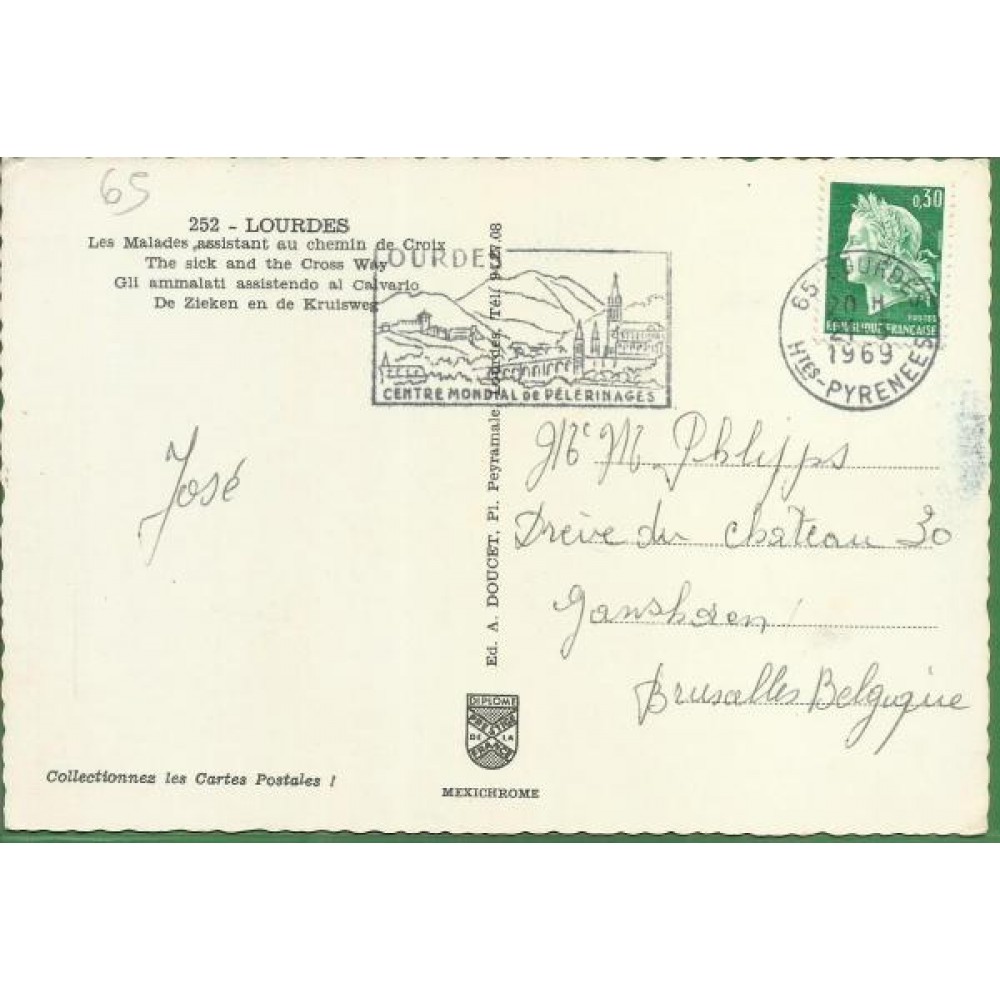 65
252 - LOURDES
Les Malades assistant au chemin de Croix
The sick and the Cross Way
Gli ammalati assistendo al Calvario
De Zieken en de Kruisweg
OURDES
CENTRE MONDIAL de PÉLERINAGES
0,30
POSTES
REPUBLIQUE FRANÇAISE
65 LOURDES
20 H
1969
Htes-PYRENEES
Ed. A. DOUCET, Pl. Peyramale, Lourdes, Tél. 94.27.08
José
Mr M. Philipps
Drève du chateau 30
Gansharen
Bruxalles Belgique
DIPLOME
PRESTIGE
DE LA
FRANCE
MEXICHROME
Collectionnez les Cartes Postales !